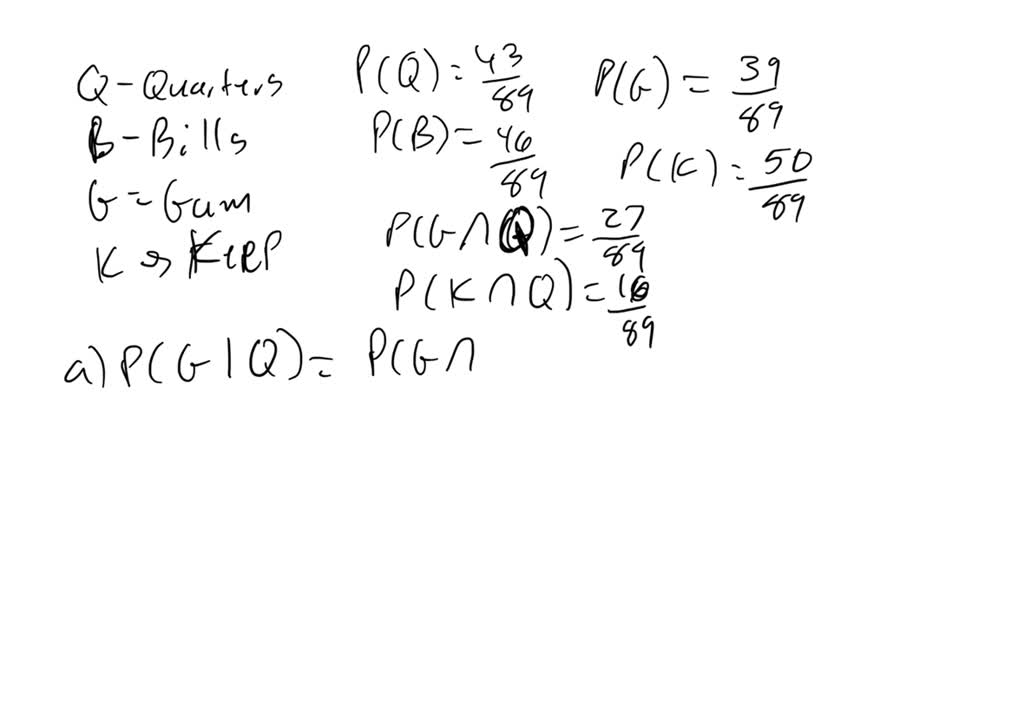 Q - Quarters
B - Bills
G = Gum
K → Keep
P(Q) = 43/89
P(B) = 46/89
P(G) = 39/89
P(K) = 50/89
P(G ∩ Q) = 27/89
P(K ∩ Q) = 16/89
a) P(G | Q) = P(G ∩